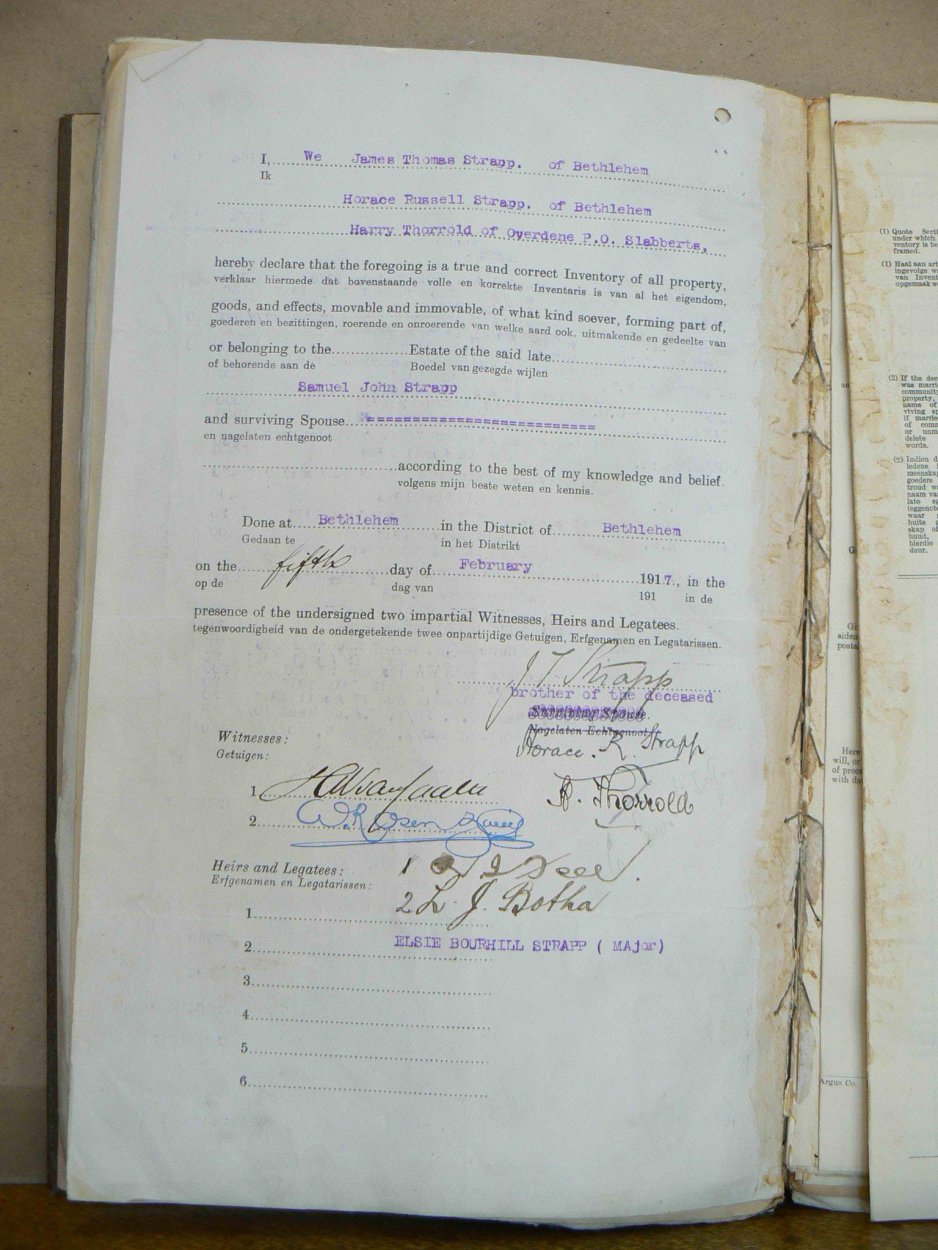 I, We James Thomas Strapp. of Bethlehem
Ik
Horace Russell Strapp. of Bethlehem
Harry Thorrold of Overdene P.O. Slabberts,
hereby declare that the foregoing is a true and correct Inventory of all property,
verklaar hiermede dat bovenstaande volle en korrekte Inventaris is van al het eigendom,
goods, and effects, movable and immovable, of what kind soever, forming part of,
goederen en bezittingen, roerende en onroerende van welke aard ook, uitmakende en gedeelte van
or belonging to the Estate of the said late
of behorende aan de Boedel van gezegde wijlen
Samuel John Strapp
and surviving Spouse ==========================
en nagelaten echtgenoot
according to the best of my knowledge and belief.
volgens mijn beste weten en kennis.
Done at Bethlehem in the District of Bethlehem
Gedaan te in het Distrikt
on the fifth day of February 1917., in the
op de dag van 191 in de
presence of the undersigned two impartial Witnesses, Heirs and Legatees.
tegenwoordigheid van de ondergetekende twee onpartijdige Getuigen, Erfgenamen en Legatarissen.
J T Strapp
brother of the deceased
Surviving Spouse.
Nagelaten Echtgenoot
Witnesses:
Horace. R. Strapp
Getuigen:
1
H. Thorrold
2
Heirs and Legatees: 1
Erfgenamen en Legatarissen:
2 L. J. Botha
1
2 ELSIE BOURHILL STRAPP ( MAjor)
3
4
5
6
(1) Quote
under which
ventory is be
framed.
(1) Haal aan
ingevolge
van
opgemaak
(2) If the
was
community
property,
name of
viving
if married
of
or
delete
words.
(2) Indien
goedere
naam
late
waar
buite
skap
huud,
hierdie
deur.
Here
will, or
of
with
Argus Co.